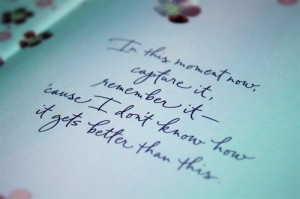 In this moment now,
capture it,
remember it—
'cause I don't know how
it gets better than this.